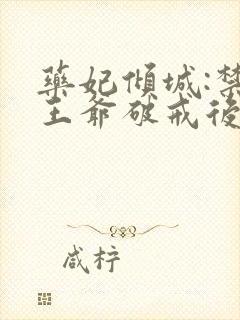 藥妃傾城:禁
王爺破戒後
咸柠